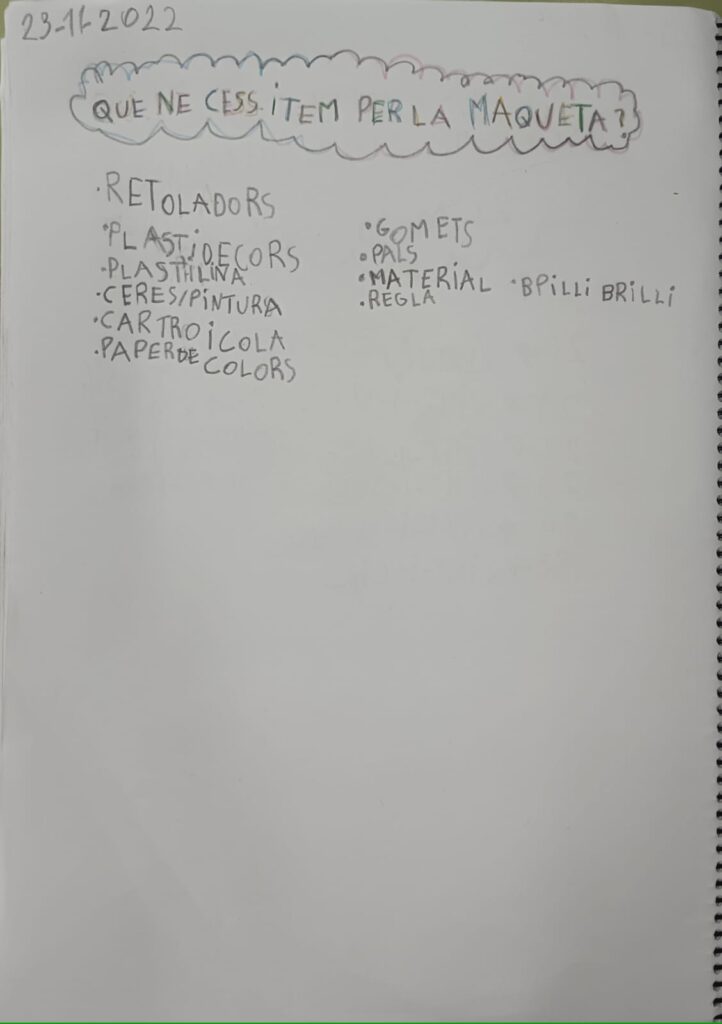 23-11-2022
QUE NE CESS.ITEM PER LA MAQUETA?
·RETOLADORS
·PLASTIDECORS
·PLASTILINA
·CERES/PINTURA
·CARTRO I COLA
·PAPER DE COLORS
·GOMETS
·PALS
·MATERIAL
·REGLA
·BPILLI BRILLI